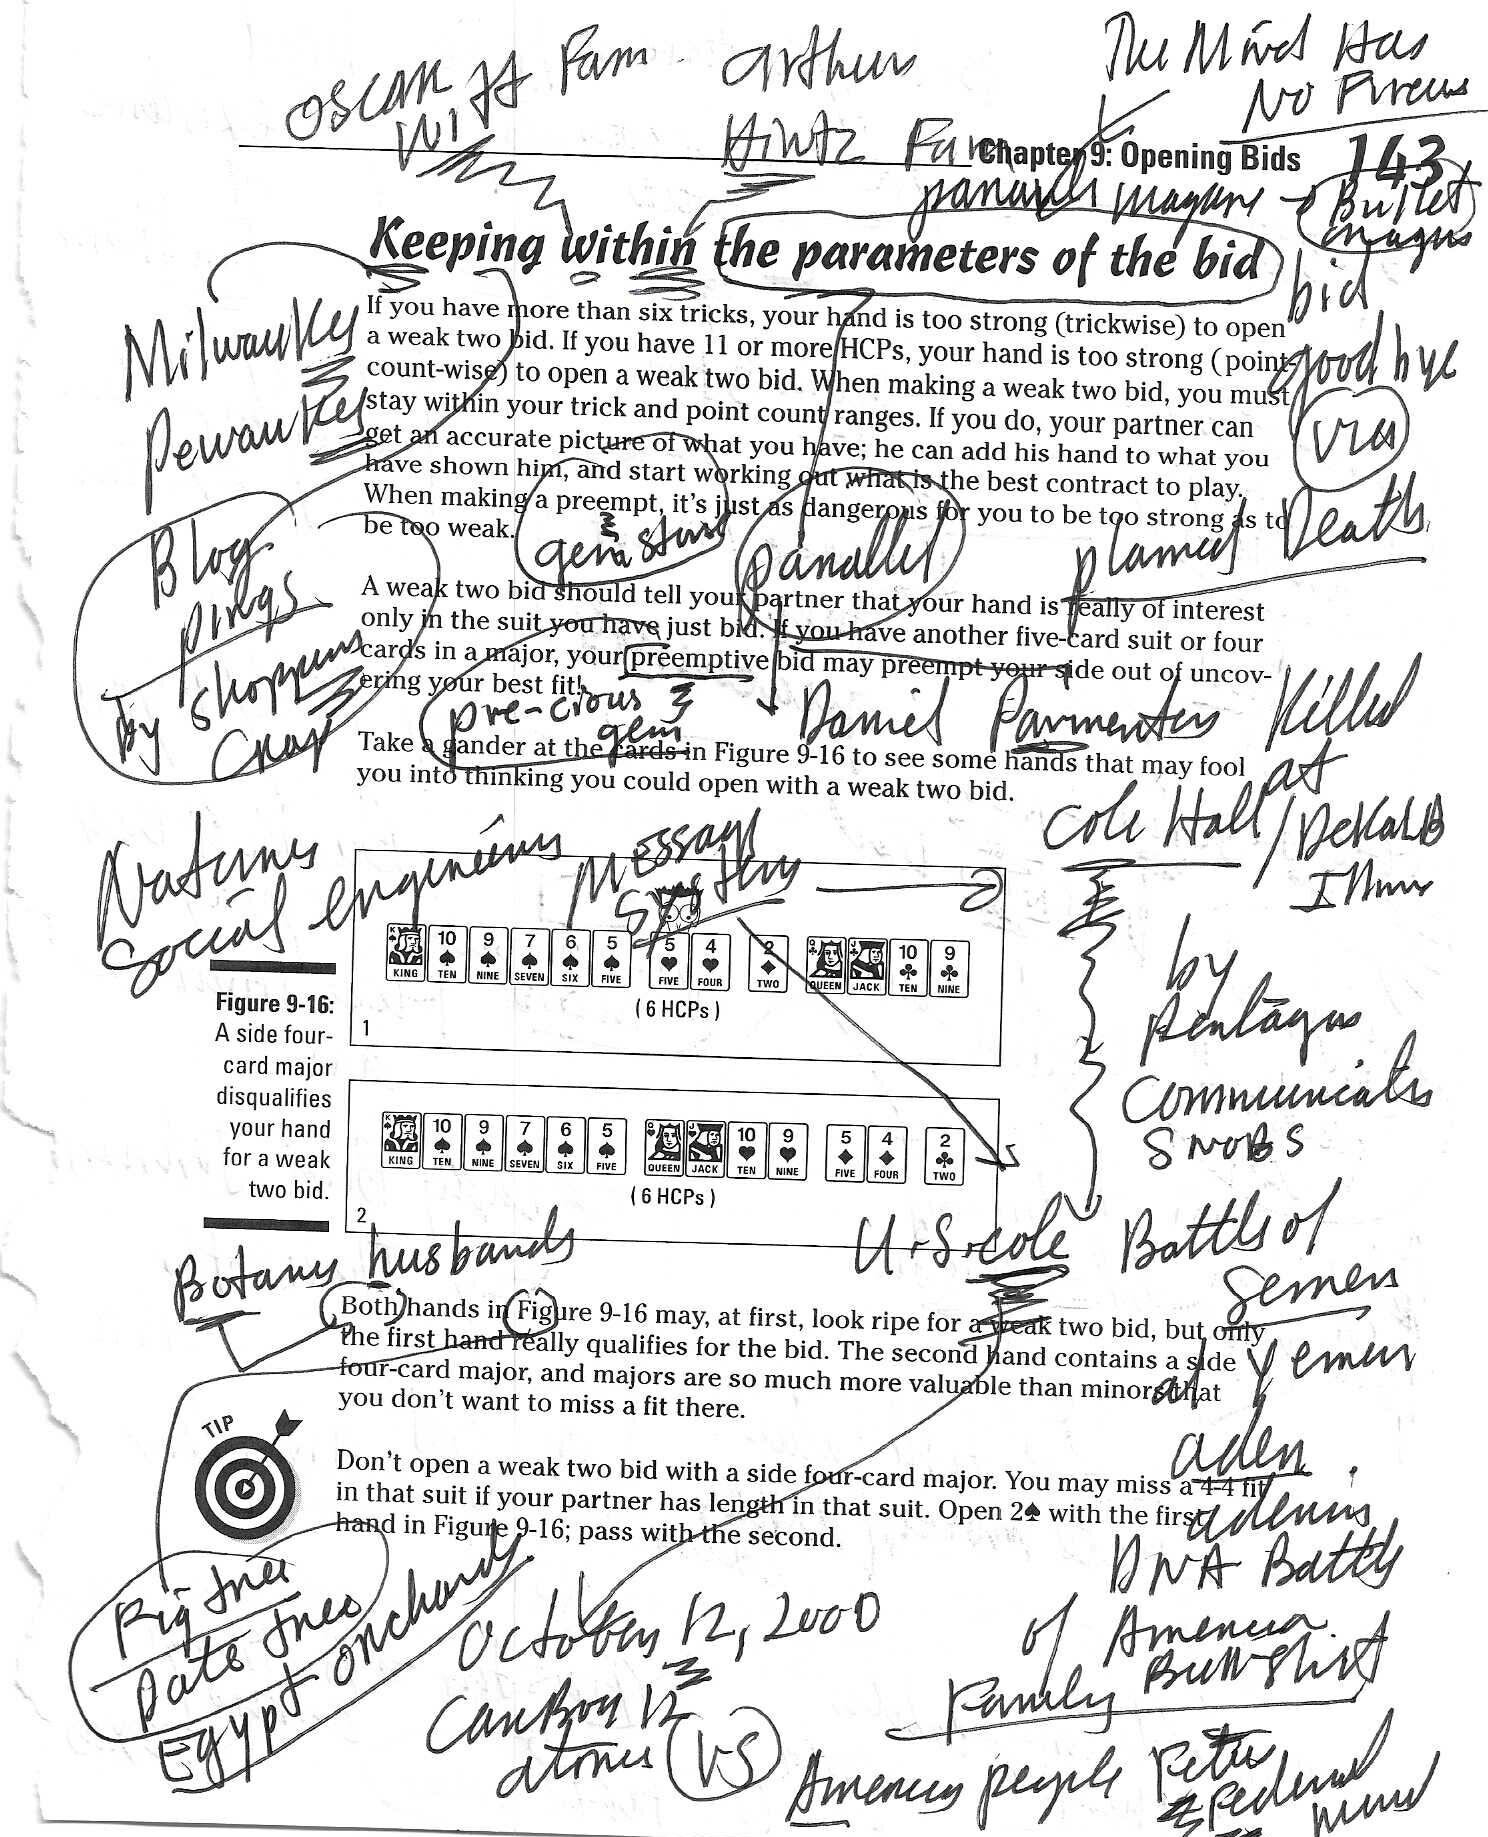 The Mind Has
No
Oscar Witt Fam
Arthur
Hintz Fam
Chapter 9: Opening Bids 143
Bullet
Keeping within the parameters of the bid
bid
goodbye
via
Death
Milwaukee
Pewaukee
If you have more than six tricks, your hand is too strong (trickwise) to open
a weak two bid. If you have 11 or more HCPs, your hand is too strong (point-
count-wise) to open a weak two bid. When making a weak two bid, you must
stay within your trick and point count ranges. If you do, your partner can
get an accurate picture of what you have; he can add his hand to what you
have shown him, and start working out what is the best contract to play.
When making a preempt, it's just as dangerous for you to be too strong as to
be too weak.
gem
parallel
planned
Blog
pings
by shoppens
crap
A weak two bid should tell your partner that your hand is really of interest
only in the suit you have just bid. If you have another five-card suit or four
cards in a major, your preemptive bid may preempt your side out of uncov-
ering your best fit!
pre-cious
gem
Daniel Parmenter Killed
at
Cole Hall / DeKalb
Take a gander at the cards in Figure 9-16 to see some hands that may fool
you into thinking you could open with a weak two bid.
Natures
Social engineering
Message
System
by
Pentagon
Communicators
SNOBS
K KING 10 TEN 9 NINE 7 SEVEN 6 SIX 5 FIVE 5 FIVE 4 FOUR 2 TWO Q QUEEN J JACK 10 TEN 9 NINE
(6 HCPs)
1
Figure 9-16:
A side four-
card major
disqualifies
your hand
for a weak
two bid.
K KING 10 TEN 9 NINE 7 SEVEN 6 SIX 5 FIVE Q QUEEN J JACK 10 TEN 9 NINE 5 FIVE 4 FOUR 2 TWO
(6 HCPs)
2
Botany husbands
U.S. cole
Battles of
Semen
of Yemen
aden
Both hands in Figure 9-16 may, at first, look ripe for a weak two bid, but only
the first hand really qualifies for the bid. The second hand contains a side
four-card major, and majors are so much more valuable than minors that
you don't want to miss a fit there.
TIP
Don't open a weak two bid with a side four-card major. You may miss a 4-4 fit
in that suit if your partner has length in that suit. Open 2♠ with the first
hand in Figure 9-16; pass with the second.
DNA Battle
of America
Bull-shit
Family
Fig tree
Date tree
Egypt orchards
October 12, 2000
Carbon 12
atomes
VS
Americas people Peter
Federal